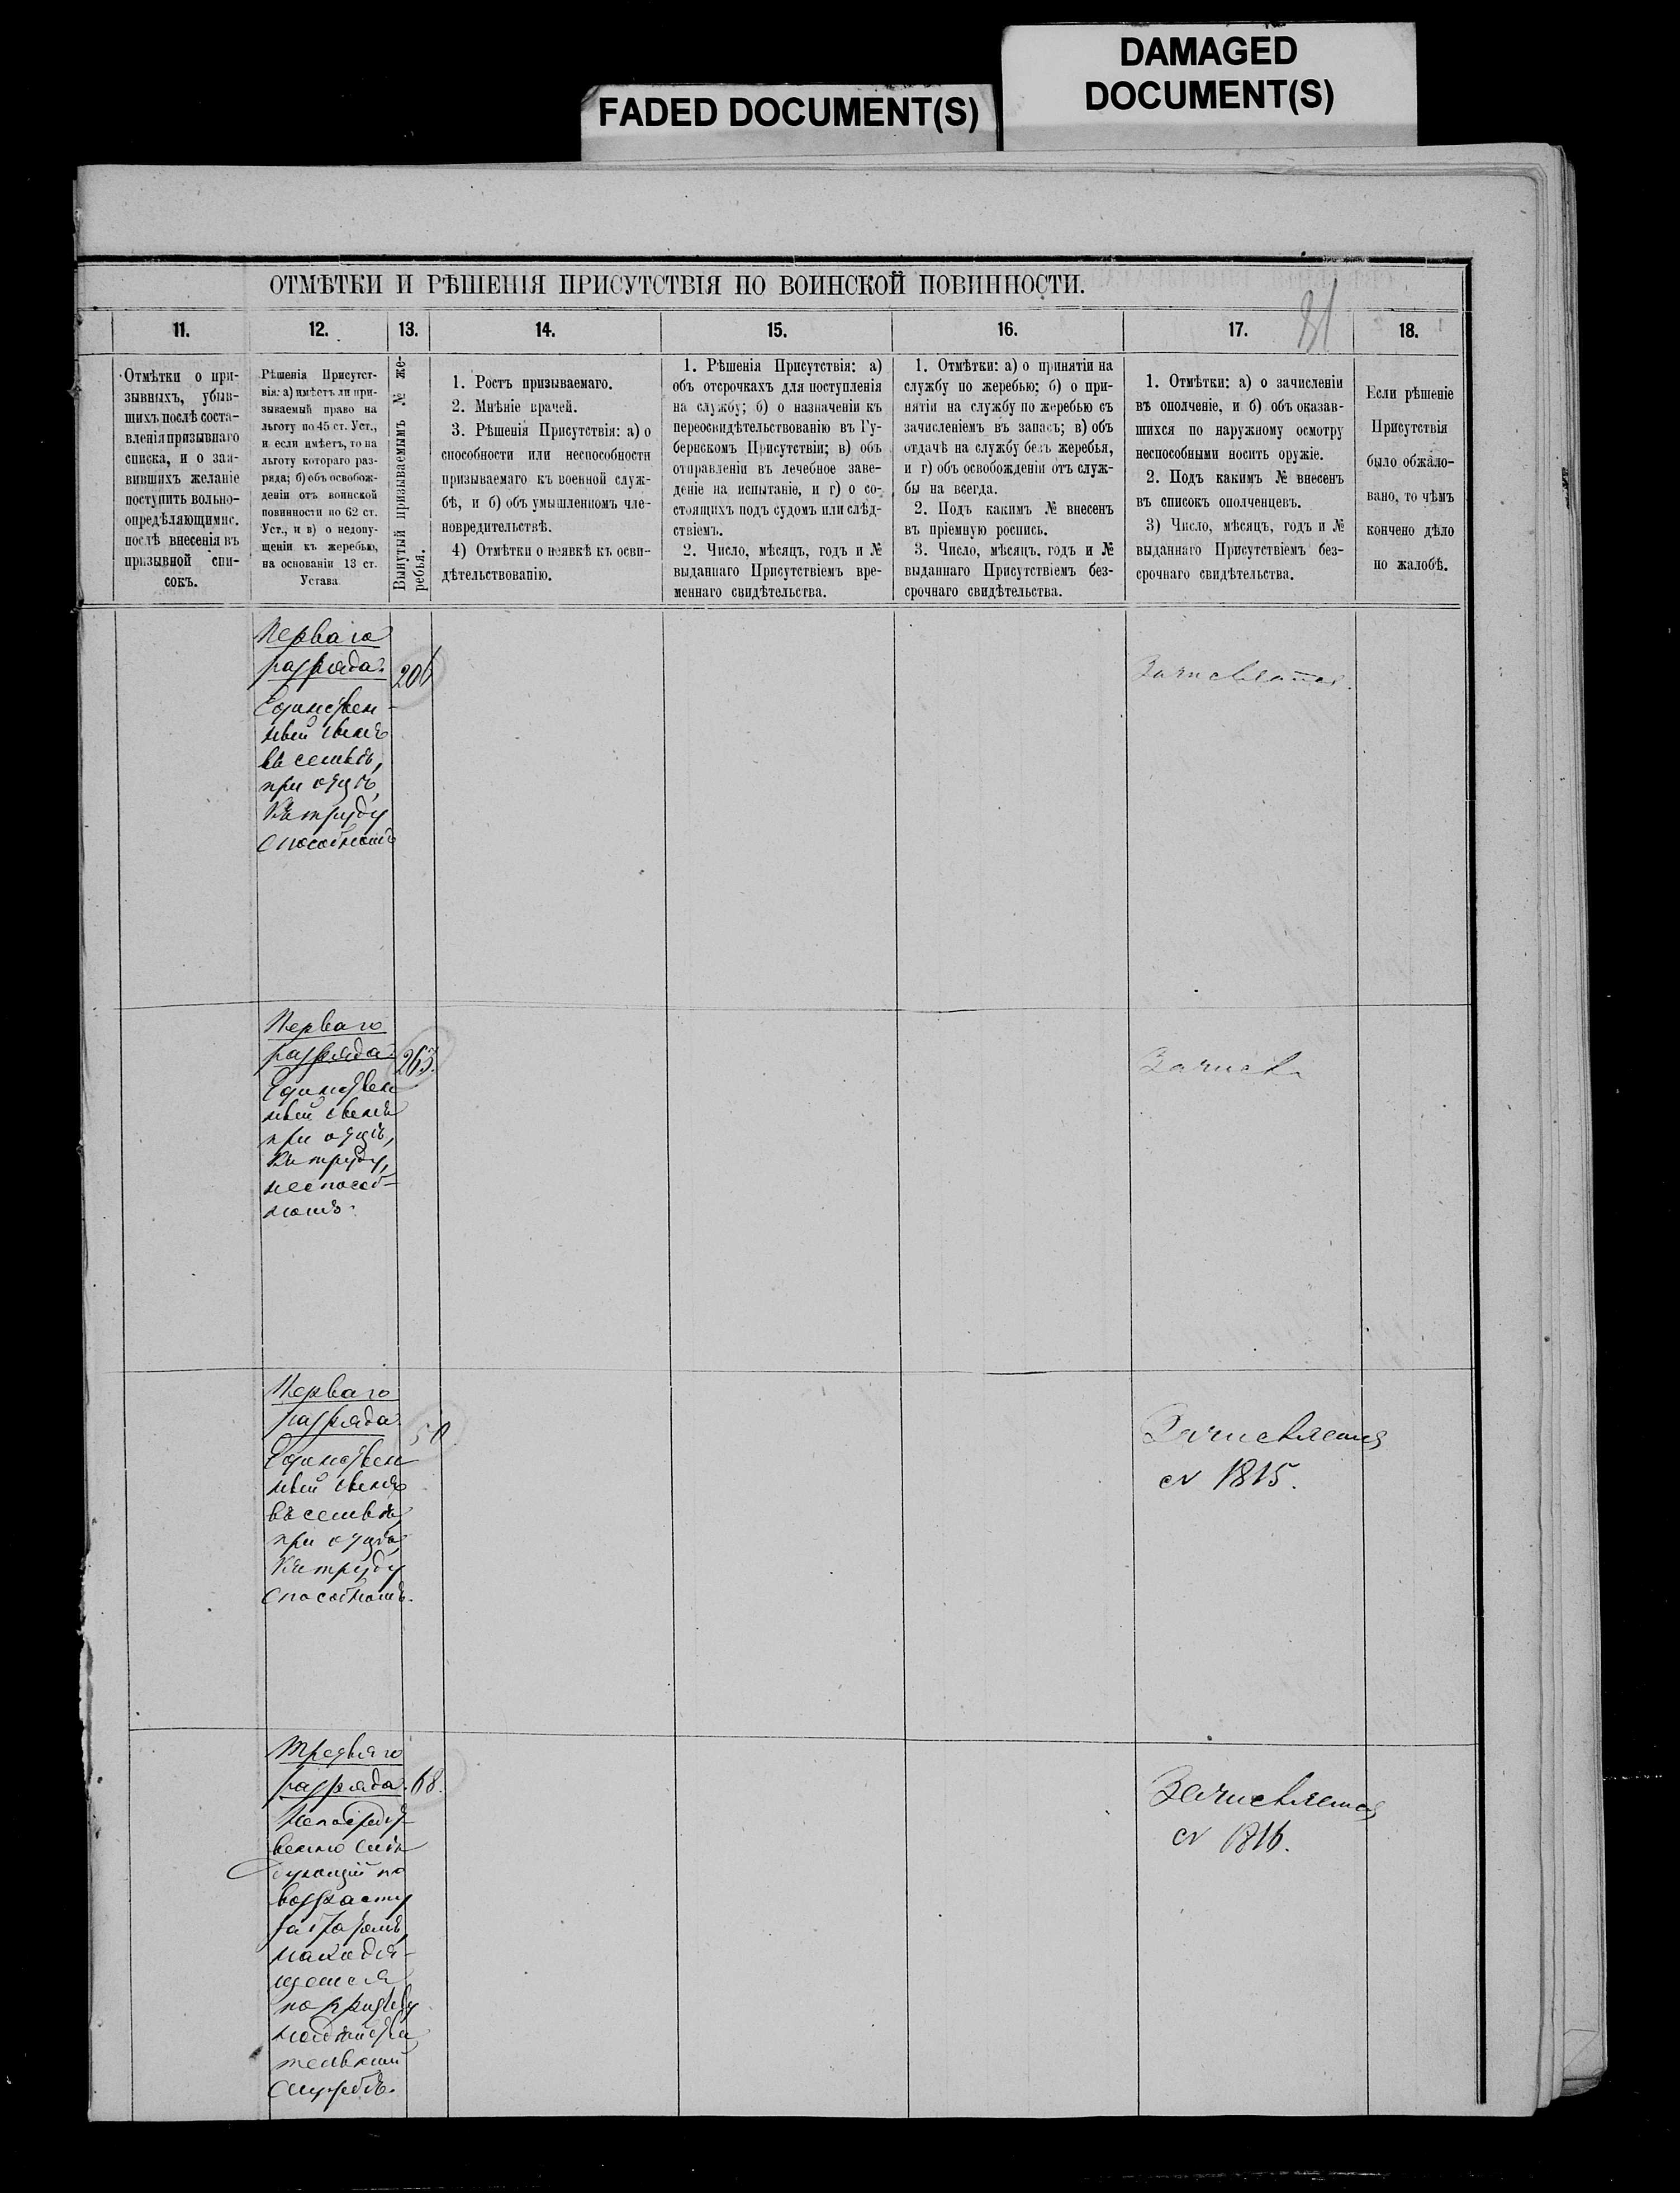 FADED DOCUMENT(S)
DAMAGED
DOCUMENT(S)
ОТМѢТКИ И РѢШЕНІЯ ПРИСУТСТВІЯ ПО ВОИНСКОЙ ПОВИННОСТИ.
31
11.
12.
13.
14.
15.
16.
17.
18.
Отмѣтки о при-
зывныхъ, убыв-
шихъ послѣ соста-
вленія призывнаго
списка, и о зая-
вившихъ желаніе
поступить вольно-
опредѣляющимис.
послѣ внесенія въ
призывной спи-
сокъ.
Рѣшенія Присутст-
вія: а) имѣетъ ли при-
зываемый право на
льготу по 45 ст. Уст.,
и если имѣетъ, то на
льготу котораго раз-
ряда; б) объ освобож-
деніи отъ воинской
повинности по 62 ст.
Уст., и в) о недопу-
щеніи къ жеребью,
на основаніи 13 ст.
Устава
Вынутый призываемымъ № же-
ребья.
1. Ростъ призываемаго.
2. Мнѣніе врачей.
3. Рѣшенія Присутствія: а) о
способности или неспособности
призываемаго къ военной служ-
бѣ, и б) объ умышленномъ чле-
новредительствѣ.
4) Отмѣтки о неявкѣ къ осви-
дѣтельствованію.
1. Рѣшенія Присутствія: а)
объ отсрочкахъ для поступленія
на службу; б) о назначеніи къ
переосвидѣтельствованію въ Гу-
бернскомъ Присутствіи; в) объ
отправленіи въ лечебное заве-
деніе на испытаніе, и г) о со-
стоящихъ подъ судомъ или слѣд-
ствіемъ.
2. Число, мѣсяцъ, годъ и №
выданнаго Присутствіемъ вре-
меннаго свидѣтельства.
1. Отмѣтки: а) о принятіи на
службу по жеребью; б) о при-
нятіи на службу по жеребью съ
зачисленіемъ въ запасъ; в) объ
отдачѣ на службу безъ жеребья,
и г) объ освобожденіи отъ служ-
бы на всегда.
2. Подъ какимъ № внесенъ
въ пріемную роспись.
3. Число, мѣсяцъ, годъ и №
выданнаго Присутствіемъ без-
срочнаго свидѣтельства.
1. Отмѣтки: а) о зачисленіи
въ ополченіе, и б) объ оказав-
шихся по наружному осмотру
неспособными носить оружіе.
2. Подъ какимъ № внесенъ
въ списокъ ополченцевъ.
3) Число, мѣсяцъ, годъ и №
выданнаго Присутствіемъ без-
срочнаго свидѣтельства.
Если рѣшеніе
Присутствія
было обжало-
вано, то чѣмъ
кончено дѣло
по жалобѣ.
Перваго
разряда.
Единствен-
ный сынъ
въ семьѣ,
при отцѣ,
къ труду
способномъ
206
Перваго
разряда.
Единствен
ный сынъ
при отцѣ,
къ труду,
неспособ-
номъ.
263.
Зачисл
Перваго
разряда.
Единствен
ный сынъ
въ семьѣ,
при отцѣ,
къ труду
способномъ.
50
Зачисляется
1815.
Третьяго
разряда.
Непосредст
венно слѣ
дующій по
возрасту
за братомъ,
находя-
щемся
по призыву
на дѣйстви
тельной
службѣ.
68.
Зачисляется
1816.